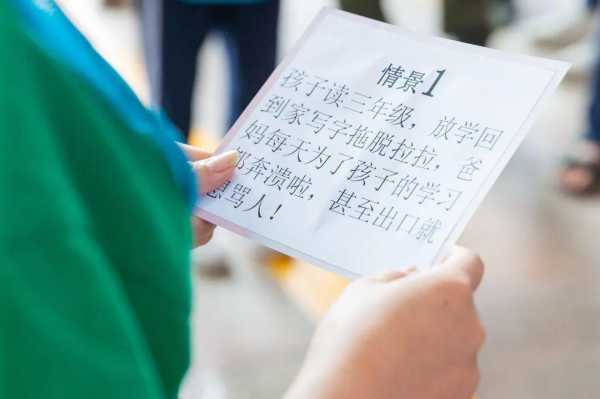 情景1
孩子读三年级，放学回
到家写字拖脱拉拉，爸
妈每天为了孩子的学习
都奔溃啦，甚至出口就
想骂人！